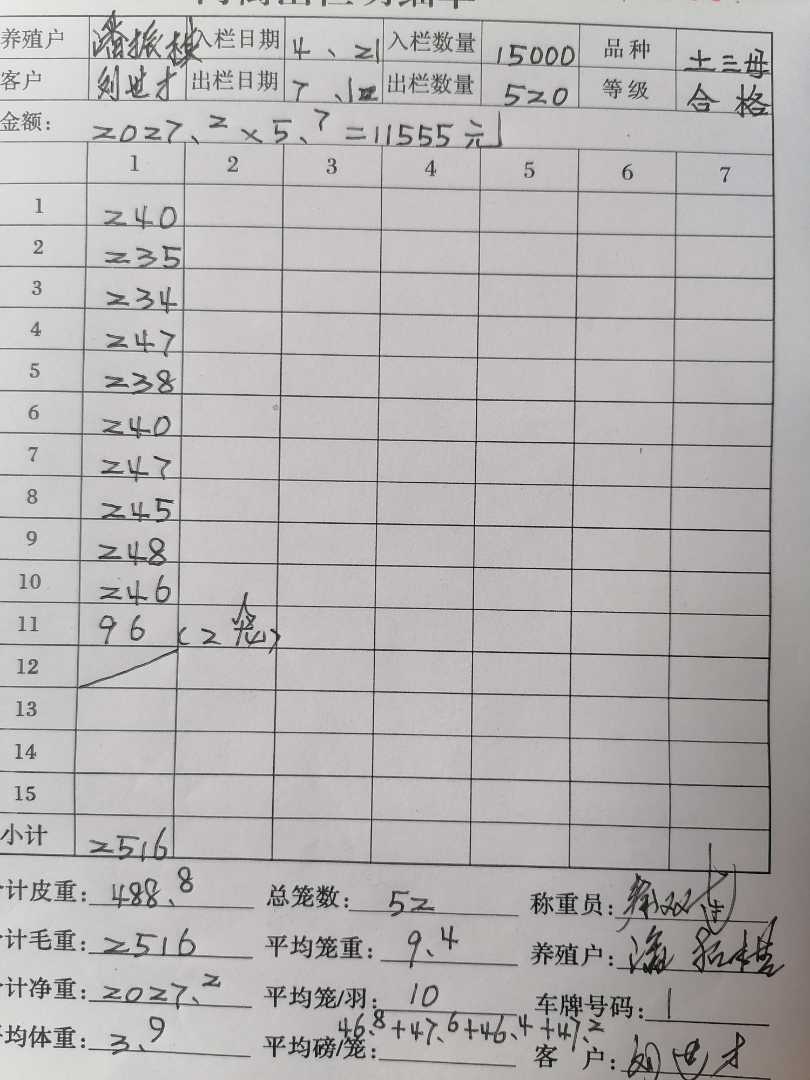 养殖户 潘振棋 入栏日期 4、21 入栏数量 15000 品种 土三母
客户 刘世才 出栏日期 7、12 出栏数量 520 等级 合格
金额: 2027、2×5、7=11555元
1 2 3 4 5 6 7
1 240
2 235
3 234
4 247
5 238
6 240
7 247
8 245
9 248
10 246
11 96 (2笼)
12
13
14
15
小计 2516
计皮重: 488、8 总笼数: 52 称重员:
计毛重: 2516 平均笼重: 9、4 养殖户: 潘振棋
计净重: 2027、2 平均笼/羽: 10 车牌号码: 1
均体重: 3、9 平均磅/笼: 46、8+47、6+46、4+47、2 客户: 刘世才